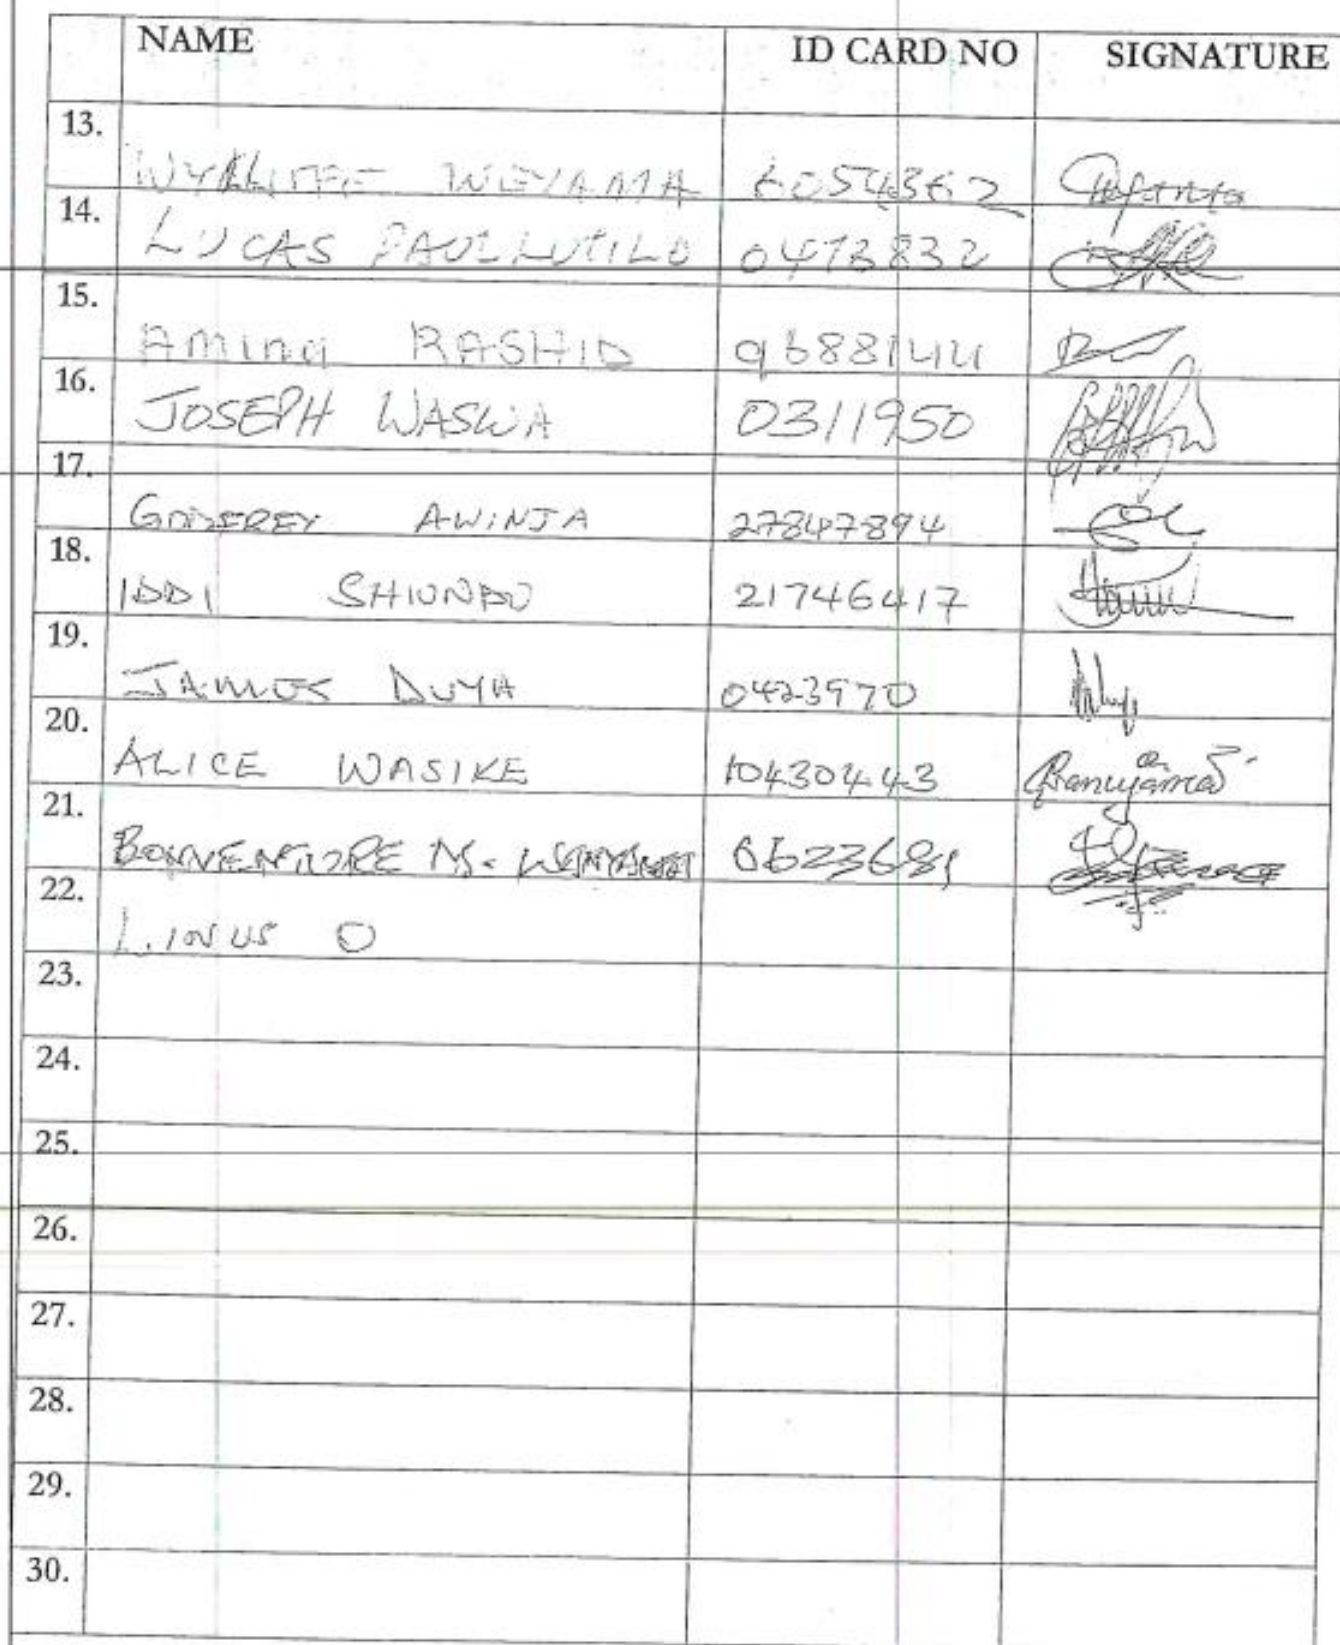 NAME ID CARD NO SIGNATURE
13. WYKLIFFE WEYAMA 6054362
14. LUCAS PAUL LUTILO 0473832
15. Amina RASHID 9688144
16. JOSEPH WASWA 0311950
17. GODFREY AWINJA 27847894
18. IDDI SHIUNDU 21746417
19. JAMES DUYA 0423970
20. ALICE WASIKE 10430443
21. BONVENTURE M. WANYAMA 0623681
22. LINUS O
23.
24.
25.
26.
27.
28.
29.
30.